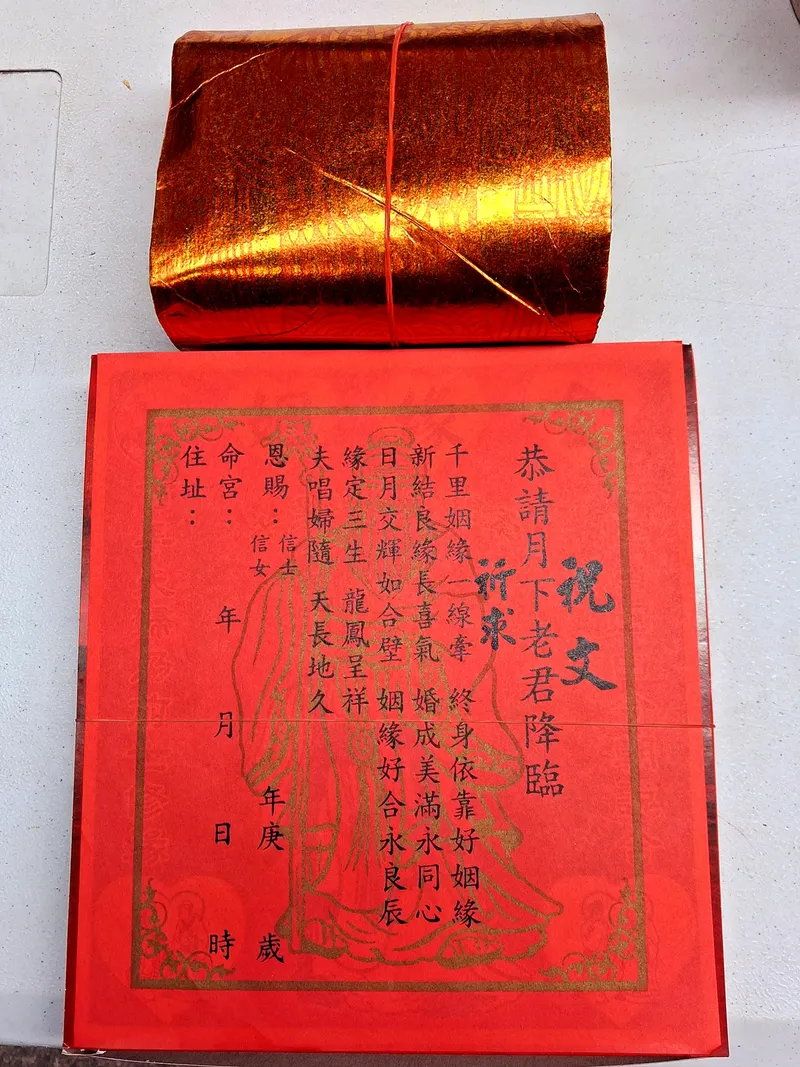 祝文
恭請月下老君降臨
祈求
千里姻緣一線牽 終身依靠好姻緣
新結良緣長喜氣 婚成美滿永同心
日月交輝如合壁 姻緣好合永良辰
緣定三生 龍鳳呈祥
夫唱婦隨 天長地久
恩賜：信士 信女 年庚 歲
命宮： 年 月 日 時
住址：